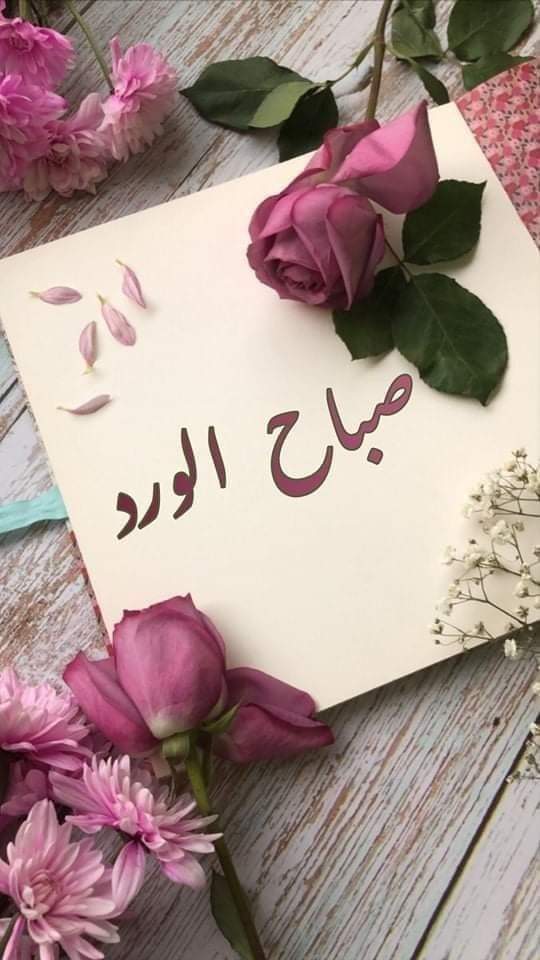 صباح الورد